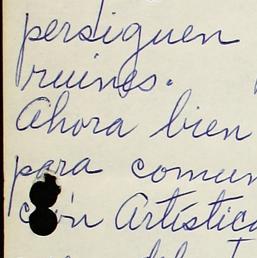 persiguen
ruines.
Ahora bien
para comun
ción Artística